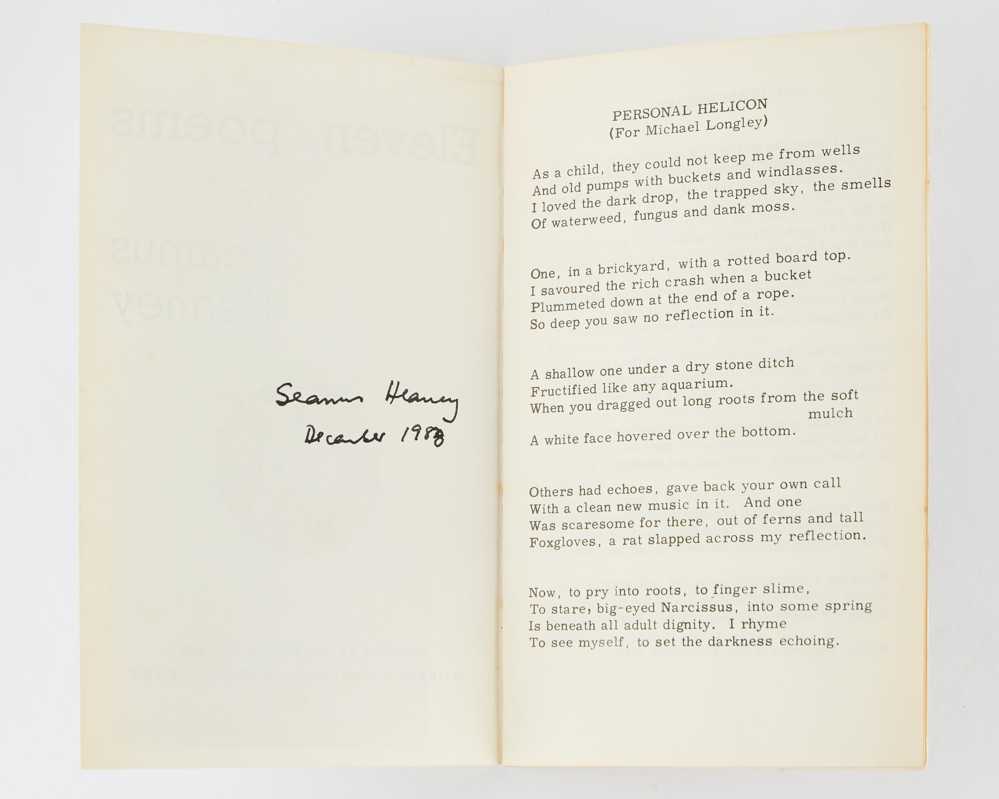 Eleven poems
Seamus Heaney
December 1988
PERSONAL HELICON
(For Michael Longley)
As a child, they could not keep me from wells
And old pumps with buckets and windlasses.
I loved the dark drop, the trapped sky, the smells
Of waterweed, fungus and dank moss.
One, in a brickyard, with a rotted board top.
I savoured the rich crash when a bucket
Plummeted down at the end of a rope.
So deep you saw no reflection in it.
A shallow one under a dry stone ditch
Fructified like any aquarium.
When you dragged out long roots from the soft
mulch
A white face hovered over the bottom.
Others had echoes, gave back your own call
With a clean new music in it. And one
Was scaresome for there, out of ferns and tall
Foxgloves, a rat slapped across my reflection.
Now, to pry into roots, to finger slime,
To stare, big-eyed Narcissus, into some spring
Is beneath all adult dignity. I rhyme
To see myself, to set the darkness echoing.